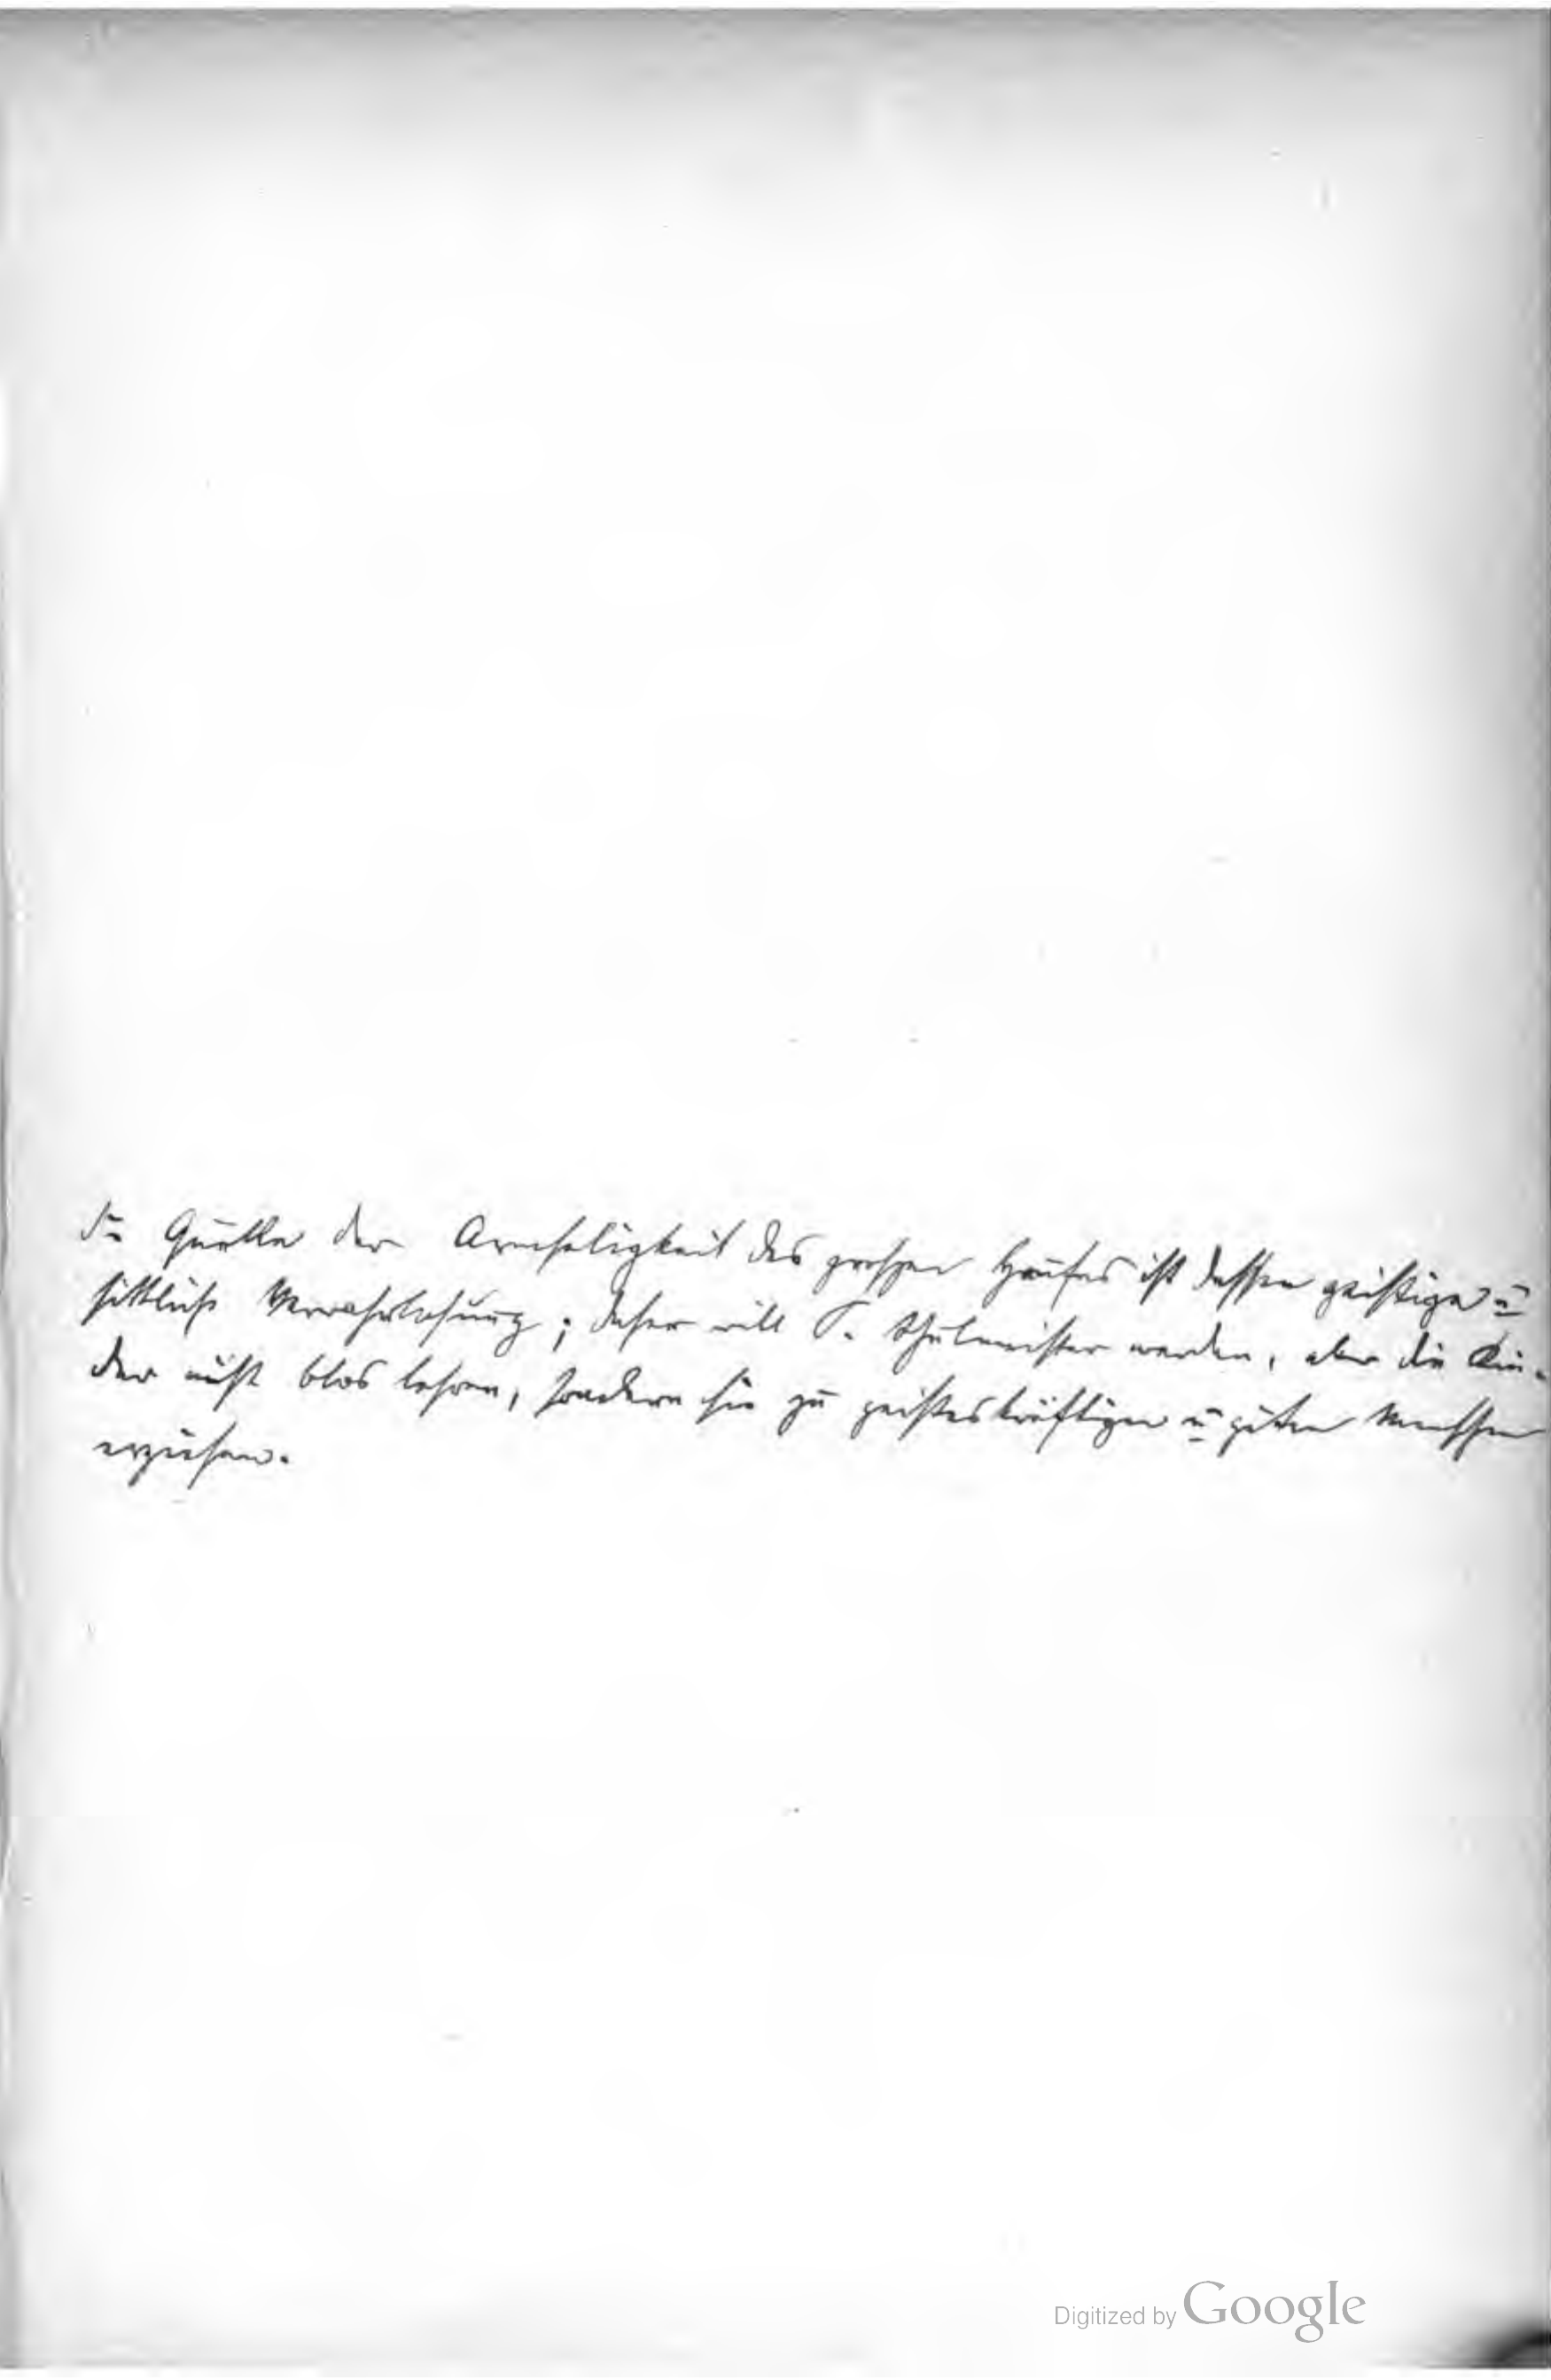 Quelle der Armseligkeit des großen Haufes ist dessen geistige u
sittliche Verwahrlosung; daher will P. Schulmeister werden, aber die Kin-
der nicht blos lehren, sondern sie zu geisteskräftigen u guten Menschen
erziehen.
Digitized by Google